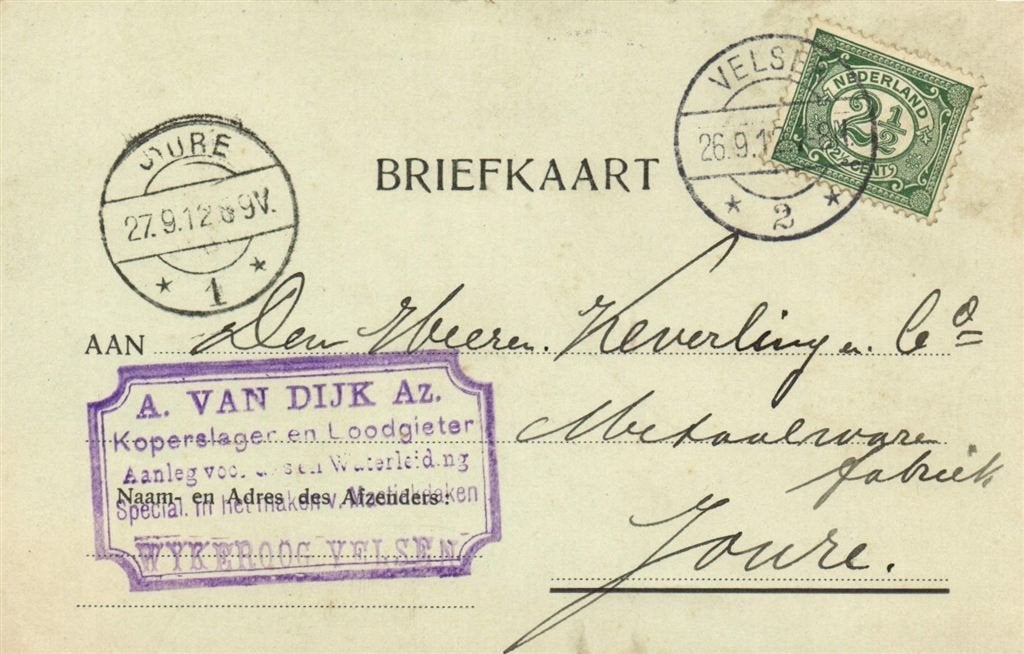 VELSEN
26.9.12 8N.
2
NEDERLAND
2½
(2½ CENT)
JOURE
27.9.12 8-9V.
1
BRIEFKAART
AAN Den Heeren. Keverling en Co
Metaalwaren
fabriek
Joure.
A. VAN DIJK Az.
Koperslager en Loodgieter
Aanleg voor Gas en Waterleiding
Naam- en Adres des Afzenders:
Special. in het maken v. Mastiekdaken
WYKEROOG VELSEN